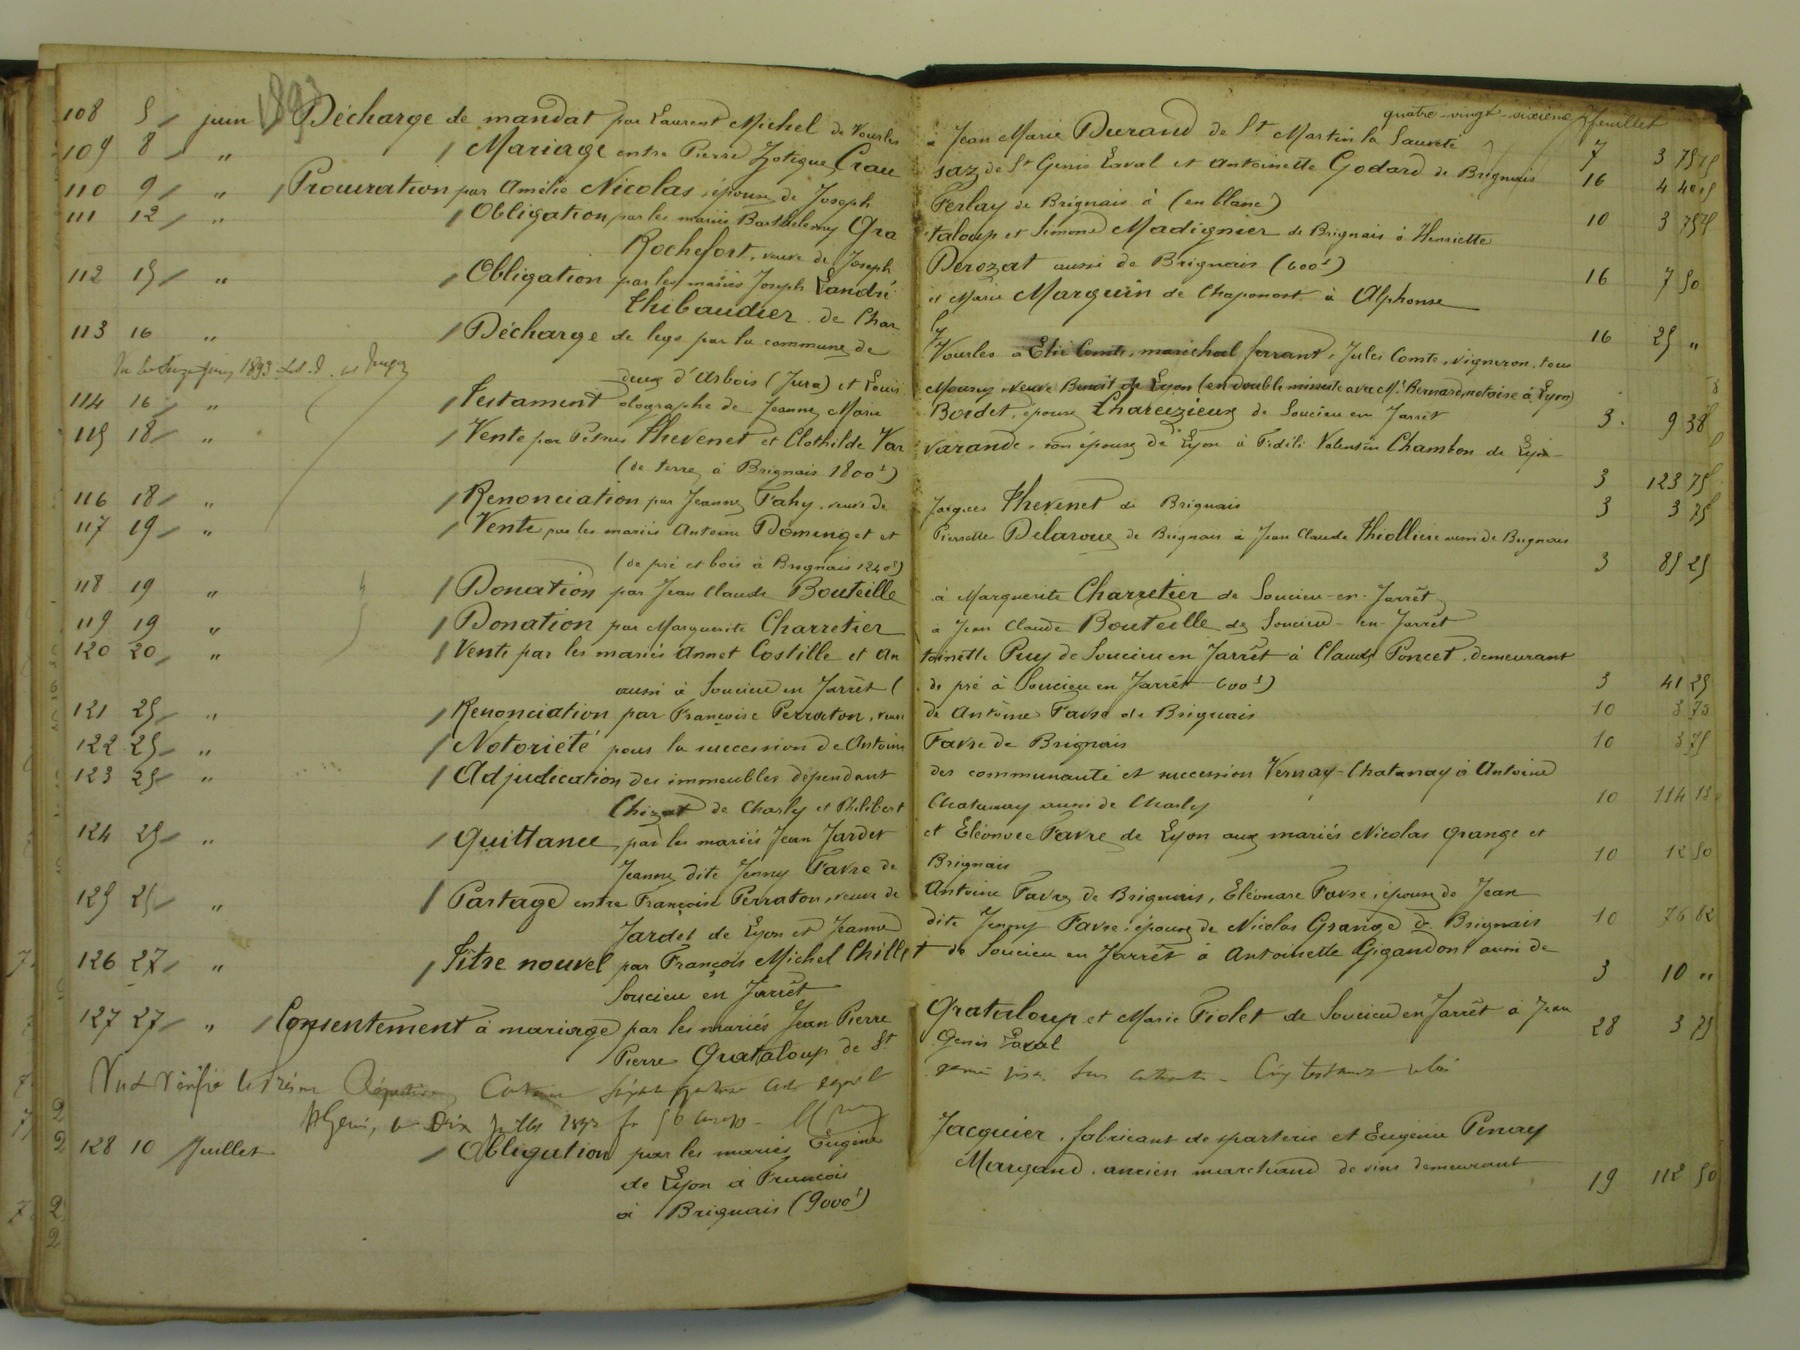 1893
quatre-vingt-sixième feuillet
108 5 juin Décharge de mandat par Laurent Michel de Vourles à Jean Marie Durand de St Martin la Sauveté 7 3 75
109 8 " Mariage entre Pierre Zotique Crau saz de St Genis Laval et Antoinette Godard de Brignais 16 4 40
110 9 " Procuration par Amélie Nicolas, épouse de Joseph Ferlay de Brignais à (en blanc)
111 12 " Obligation par les mariés Barthelemy Gra taloup et Simone Madignier de Brignais à Henriette 10 3 75
Rochefort, veuve de Joseph Perozat aussi de Brignais (600f)
112 15 " Obligation par les mariés Joseph Landré et Marie Marguin de Chaponost à Alphonse 16 7 50
Thibaudier de Char
113 16 " Décharge de legs par la commune de Vourles à Elie Comte, maréchal ferrant, Jules Comte, vigneron, tous 16 25 "
deux d'Arbois (Jura) et Louis Mourey veuve Benoit de Lyon (en double minute avec Me Bernard, notaire à Lyon)
114 16 " Testament olographe de Jeanne Marie Bordet, épouse Thareizieux de Soucieu en Jarrêt 3 9 38
115 18 " Vente par Petrus Thevenet et Clothilde Var varande, son épouse de Lyon à Fidéli Valentin Chambon de Lyon
(de terre à Brignais 1800f) 3 123 75
116 18 " Renonciation par Jeanne Fahy, veuve de Jacques Thevenet de Brignais 3 3 75
117 19 " Vente par les mariés Antoine Domenget et Pierrette Delaroue de Brignais à Jean Claude Thiolliere aussi de Brignais
(de pré et bois à Brignais 1240f) 3 85 25
118 19 " Donation par Jean Claude Bouteille à Marguerite Charretier de Soucieu-en-Jarrêt
119 19 " Donation par Marguerite Charretier à Jean Claude Bouteille de Soucieu-en-Jarrêt
120 20 " Vente par les mariés Annet Costille et An toinette Puy de Soucieu en Jarrêt à Claude Poncet, demeurant
aussi à Soucieu en Jarrêt ( de pré à Soucieu en Jarrêt 600f) 3 41 25
121 25 " Renonciation par Françoise Perraton, veuve de Antoine Favre de Brignais 10 3 75
122 25 " Notoriété pour la succession de Antoine Favre de Brignais 10 3 75
123 25 " Adjudication des immeubles dépendant des communauté et succession Vernay-Chatanay à Antoine
Chizat de Charly et Philibert Chatanay aussi de Charly 10 114
124 25 " Quittance par les mariés Jean Jardet et Eléonore Favre de Lyon aux mariés Nicolas Grange et
Jeanne dite Jenny Favre de Brignais 10 12 50
125 25 " Partage entre Françoise Perraton, veuve de Antoine Favre de Brignais, Eléonore Favre, épouse de Jean
Jardet de Lyon et Jeanne dite Jenny Favre, épouse de Nicolas Grange de Brignais 10 76 82
126 27 " Titre nouvel par François Michel Chillet de Soucieu en Jarrêt à Antoinette Gigandon aussi de
Soucieu en Jarrêt 3 10 "
127 27 " Consentement à mariage par les mariés Jean Pierre Grataloup et Marie Fiolet de Soucieu en Jarrêt à Jean
Pierre Grataloup de St Genis Laval 28 3 75
128 10 Juillet Obligation par les mariés Eugène Jacquier, fabricant de sparterie et Eugénie Pinay
de Lyon à François Margand, ancien marchand de vins demeurant
à Brignais (9000f) 19 112 50